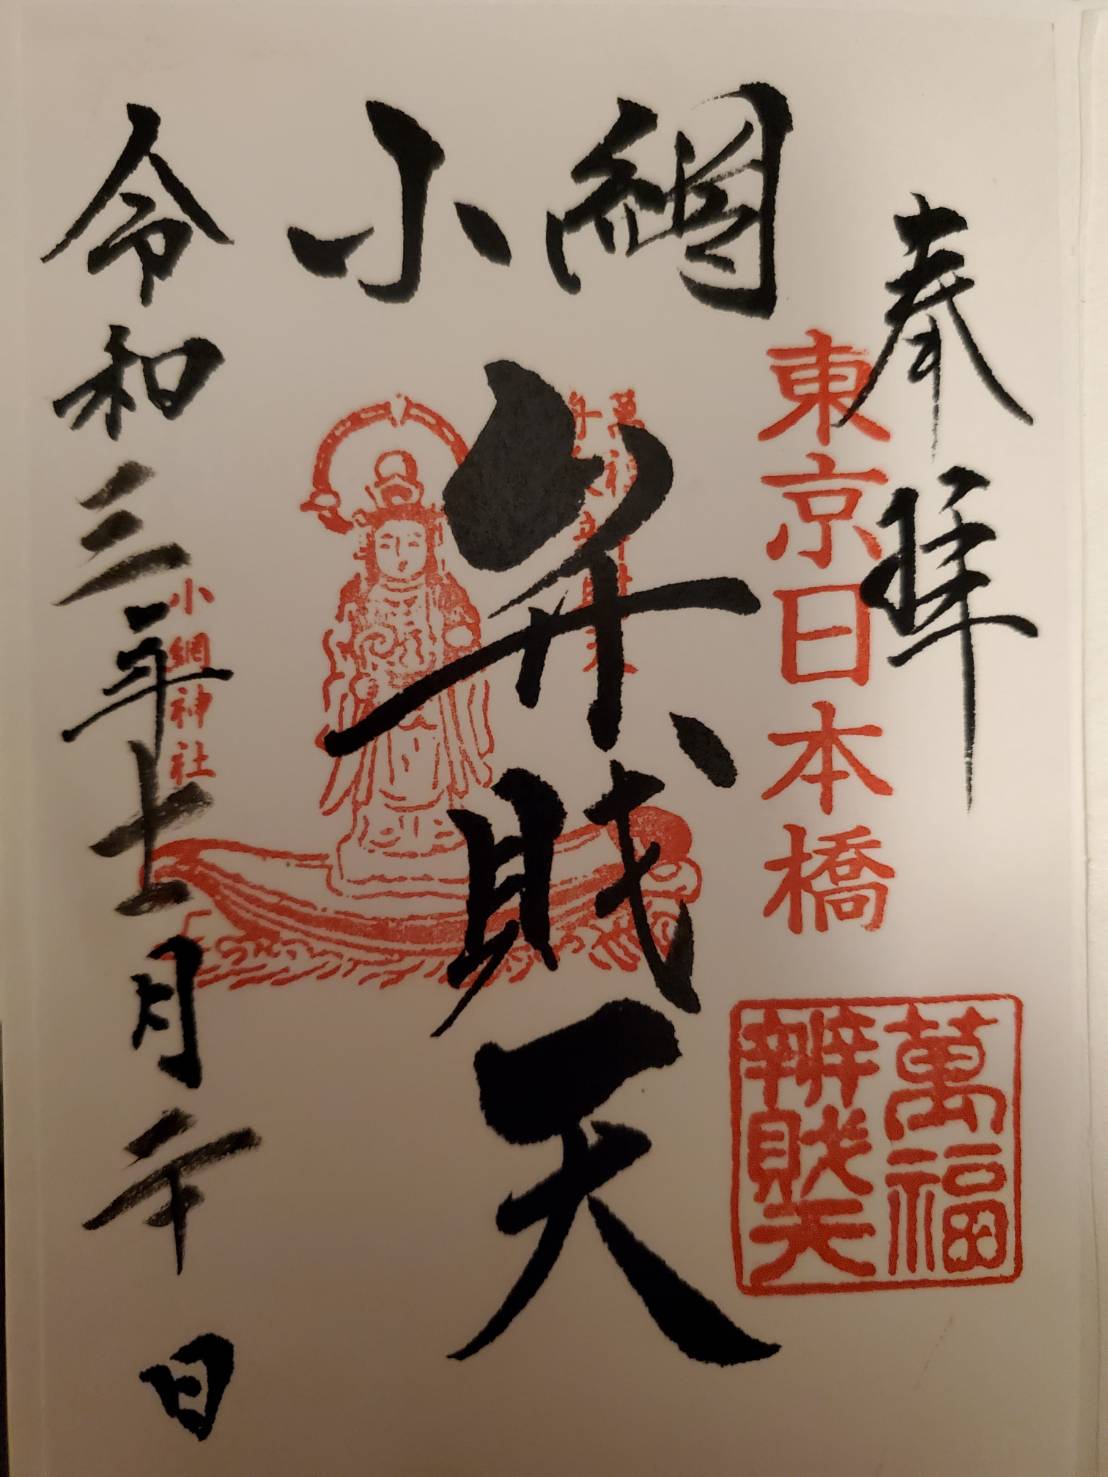 奉拝
東京日本橋
萬福
辨財天
小網
弁財天
令和三年十一月二十日
小網神社